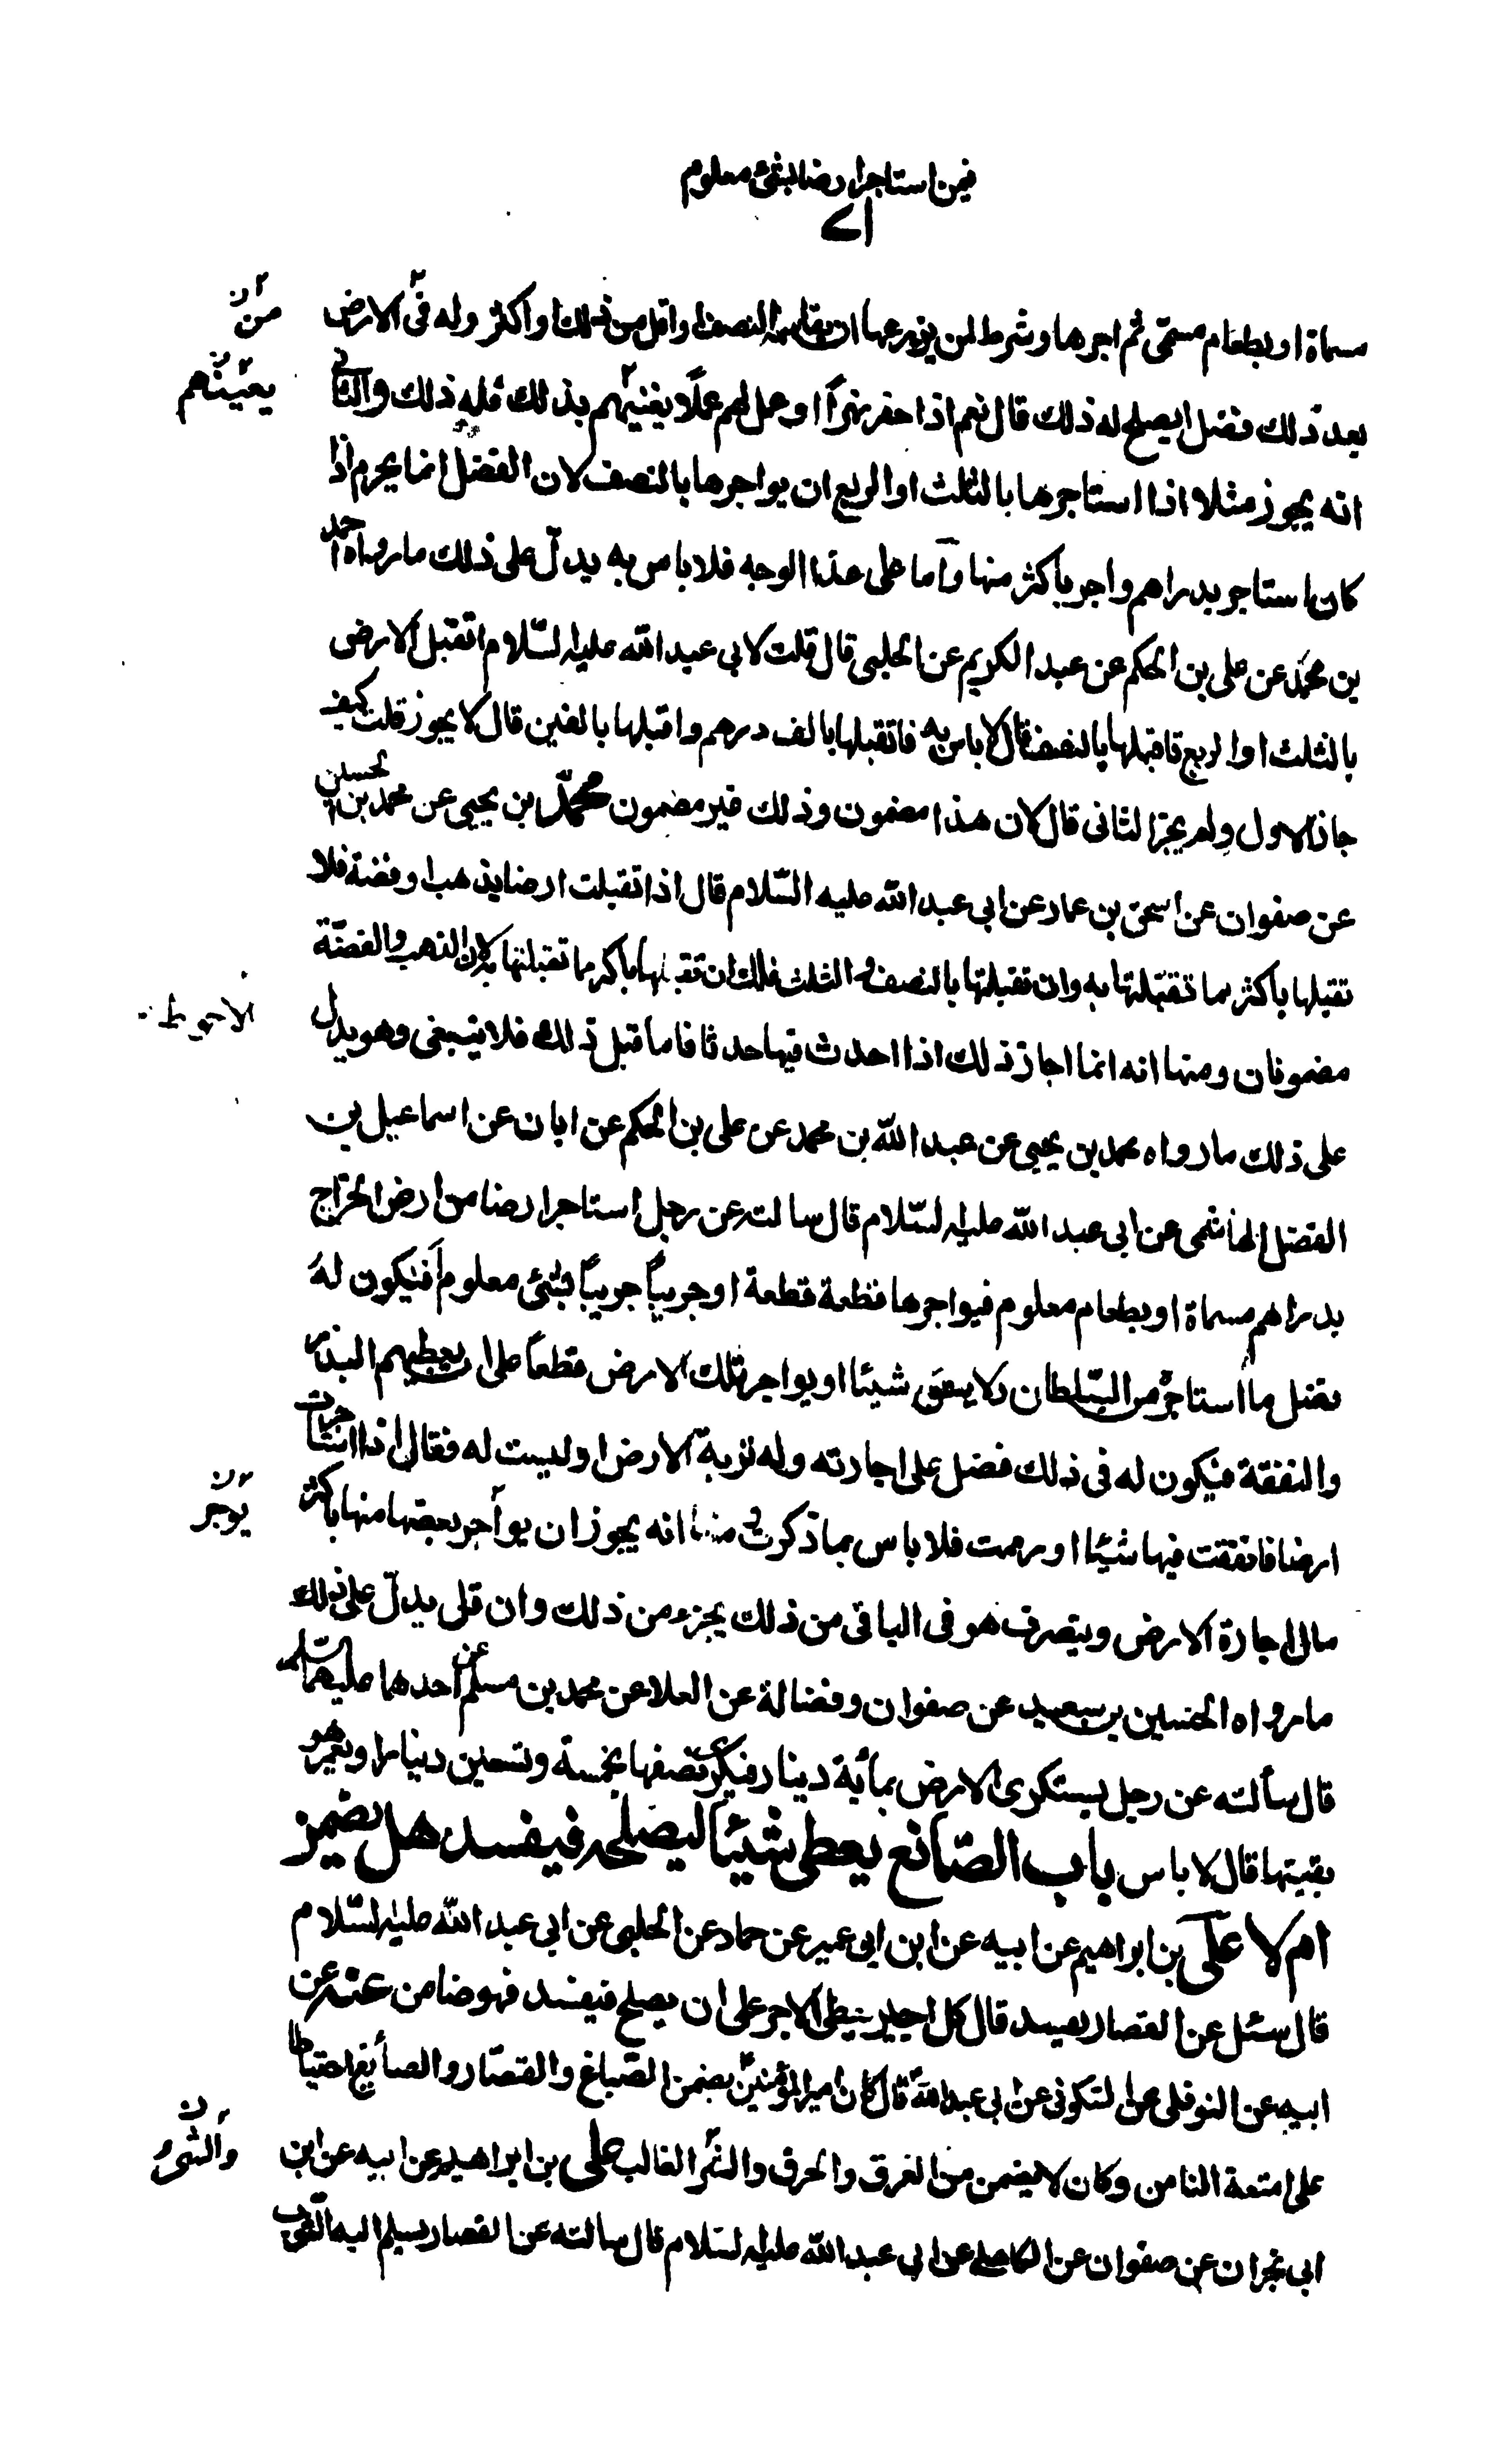 فيمن استاجر ارضا بشئ معلوم
مسماة او بطعام مسمّى ثم اجرها و شرط لمن يزرعها ان يقاسمه النصف او اقل من ذلك او اكثر وله فى الارض
من
بعد ذلك فضل ايصلح له ذلك قال نعم اذا حفر نهرًا او عمل لهم عملًا يغنيهم بذلك فله ذلك والثانى
يعينهم
انه يجوز مثلا اذا استاجرها بالثلث او الربع ان يواجرها بالنصف لان الفضل انما يحرم اذا
كان استاجر بدراهم واجر باكثر منها وأما على هذا الوجه فلا باس به يدلّ على ذلك مارواه احمد
بن محمّد عن على بن الحكم عن عبد الكريم عن الحلبى قال قلت لابى عبد الله عليه السّلام اتقبل الارض
بالثلث او الربع فاقبلها بالنصف قال لاباس به فاتقبلها بالف درهم واقبلها بالفين قال لا يجوز قلت كيف
جاز الاول ولم يجز الثانى قال لان هذا مضمون وذلك غير مضمون محمّد بن يحيى عن محمد بن الحسين
عن صفوان عن اسحق بن عمار عن ابى عبد الله عليه السّلام قال اذا تقبلت ارضا بذهب او فضة فلا
تقبلها باكثر مما تقبّلتها به وان تقبلتها بالنصف و الثلث فلك ان تقبلها باكثر مما تقبلتها به لان الذهب والفضّة
مضمونان ومنها انه انما اجاز ذلك اذا احدث فيها حدثا فاما قبل ذلك فلا ينبغى وهو يدل
الاحوط
على ذلك مارواه محمد بن يحيى عن عبد الله بن محمد عن على بن الحكم عن ابان عن اسماعيل بن
الفضل الهاشمى عن ابى عبد الله عليه السّلام قال سالته عن رجل استاجر ارضا من ارض الخراج
بدراهم مسماة او بطعام معلوم فيواجرها قطعة قطعة او جريبًا جريبًا بشئ معلوم أفيكون لهُ
فضل ما استاجر من السّلطان ولا ينفق شيئا او يواجر تلك الارض قطعًا على ان يعطيهم البذر
والنفقة فيكون له فى ذلك فضل على اجارته وله تربة الارض او ليست له فقال اذا استاجرت
ارضا فانفقت فيها شيئا او رممت فلا باس بما ذكرت و منها انه يجوز ان يوأجر بعضها منها باكثر
يوجر
مال اجارة الارض ويتصرف هو فى الباقى من ذلك بجزء من ذلك وان قل يدلّ على ذلك
مارواه الحسين بن سعيد عن صفوان وفضالة عن العلا عن محمد بن مسلم عن احدهما عليهما السّلم
قال سألته عن رجل يستكرى الارض بمأية دينار فيكرى نصفها بخمسة وتسعين دينارا ويعمر هو
بقيتها قال لا باس باب الصّانع يعطى شيئًا ليصلحه فيفسد هل يضمن
ام لا على بن ابراهيم عن ابيه عن ابن ابى عمير عن حماد عن الحلبى عن ابى عبد الله عليه السّلام
قال سئل عن القصار يفسد قال كل اجير يعطى الاجر على ان يصلح فيفسد فهو ضامن عنه عن
ابيه عن النوفلى عن السّكونى عن ابى عبد الله قال كان امير المؤمنين يضمن الصّباغ والقصّار والصأيغ احتياطا
على امتعة الناس وكان لا يضمن من الغرق والحرق والشر الغالب على بن ابراهيم عن ابيه عن ابن
والشئ
ابى نجران عن صفوان عن الكاهلى عن ابى عبد الله عليه السّلام قال سالته عن القصار يسلم اليه الثوب